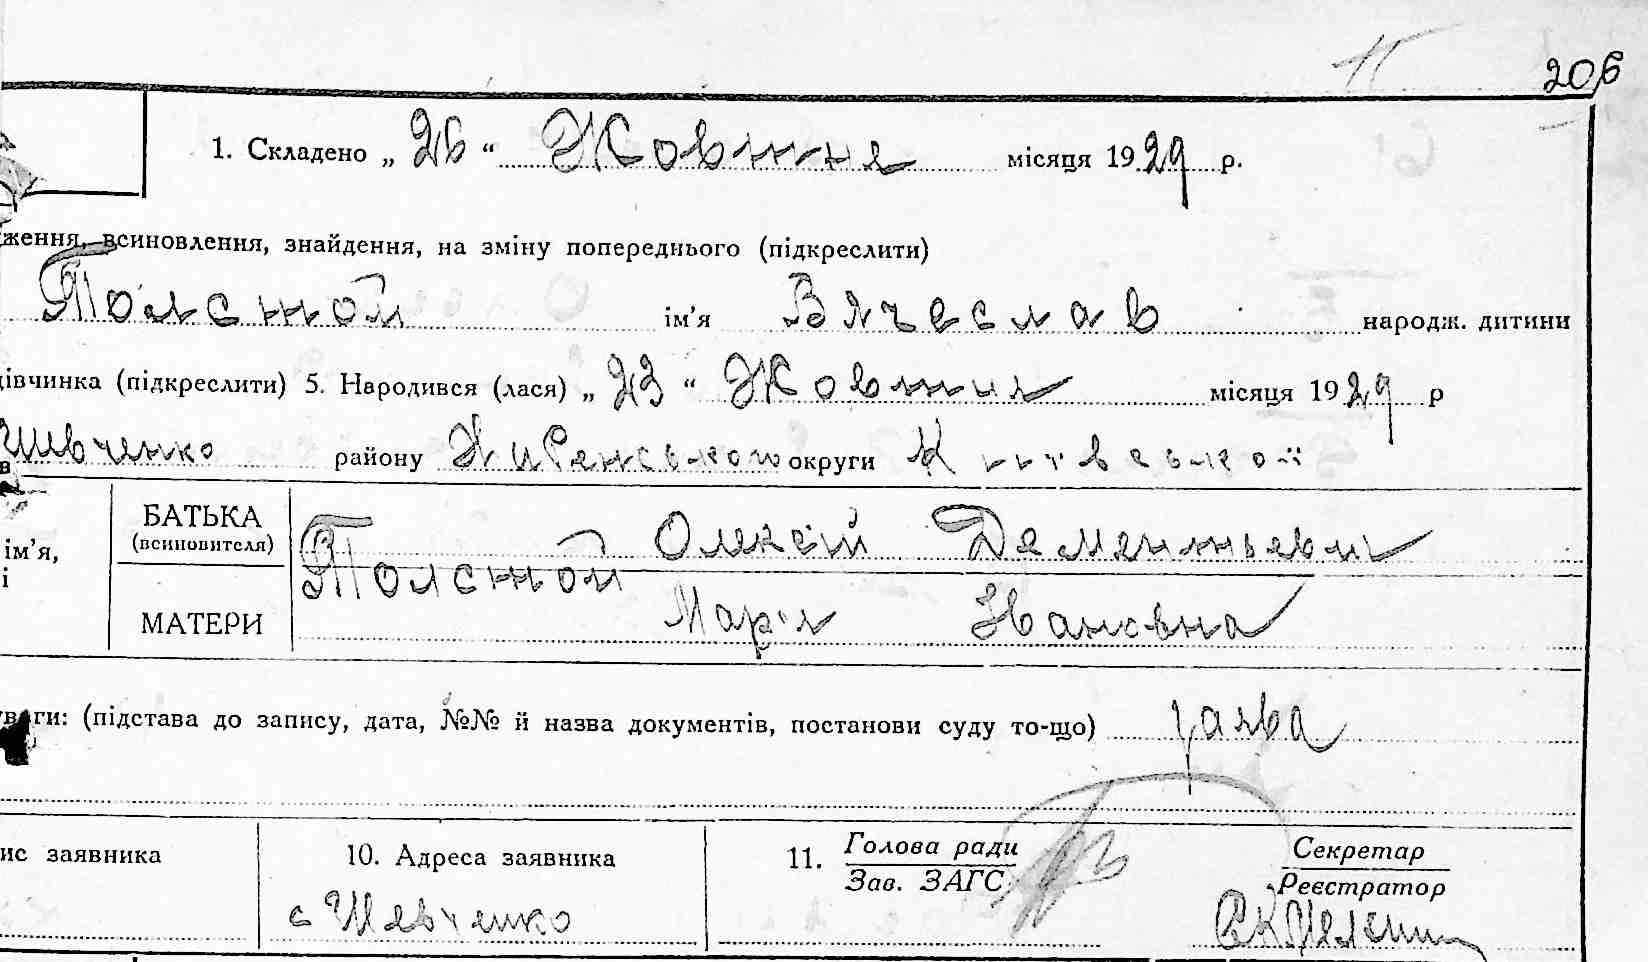 206
1. Складено „ 26 “ Жовтня місяця 1929 р.
ження, всиновлення, знайдення, на зміну попереднього (підкреслити)
Толстой ім’я Вячеслав народж. дитини
дівчинка (підкреслити) 5. Народився (лася) „ 23 “ Жовтня місяця 1929 р
Шевченко району округи Київської
БАТЬКА
(всиновителя)
Олексій Дементьевич
ім’я,
і
Толстой
МАТЕРИ
Мар'я Івановна
ваги: (підстава до запису, дата, №№ й назва документів, постанови суду то-що) заява
ис заявника
10. Адреса заявника
с Шевченко
11. Голова ради
Зав. ЗАГС
Секретар
Реєстратор